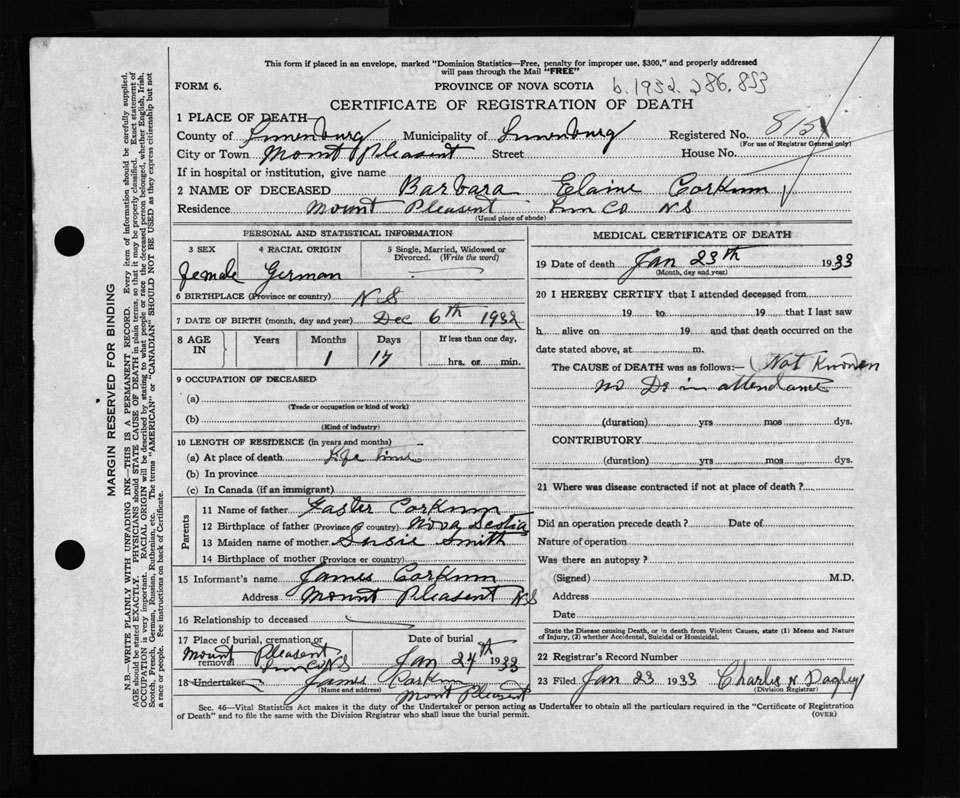 This form if placed in an envelope, marked "Dominion Statistics—Free, penalty for improper use, $300," and properly addressed
will pass through the Mail "FREE"
FORM 6. PROVINCE OF NOVA SCOTIA b. 1932. 286. 853
CERTIFICATE OF REGISTRATION OF DEATH
1 PLACE OF DEATH
County of Lunenburg Municipality of Lunenburg Registered No. 815
(For use of Registrar General only)
City or Town Mount Pleasent Street House No.
If in hospital or institution, give name
2 NAME OF DECEASED Barbara Elaine Corkum
Residence Mount Pleasent Lun Co NS
(Usual place of abode)
PERSONAL AND STATISTICAL INFORMATION
3 SEX 4 RACIAL ORIGIN 5 Single, Married, Widowed or
Divorced. (Write the word)
female German
6 BIRTHPLACE (Province or country) N S
7 DATE OF BIRTH (month, day and year) Dec 6th 1932
8 AGE IN Years Months Days If less than one day,
1 17 hrs. or min.
9 OCCUPATION OF DECEASED
(a)
(Trade or occupation or kind of work)
(b)
(Kind of industry)
10 LENGTH OF RESIDENCE (in years and months)
(a) At place of death Life time
(b) In province
(c) In Canada (if an immigrant)
Parents
11 Name of father Faster Corkum
12 Birthplace of father (Province or country) Nova Scotia
13 Maiden name of mother Susie Smith
14 Birthplace of mother (Province or country)
15 Informant's name James Corkum
Address Mount Pleasent NS
16 Relationship to deceased
17 Place of burial, cremation or removal Date of burial
Mount Pleasent Lun Co NS Jan 24th 1933
18 Undertaker James Corkum
(Name and address) Mont Pleasent
MEDICAL CERTIFICATE OF DEATH
19 Date of death Jan 23th 1933
(Month, day and year)
20 I HEREBY CERTIFY that I attended deceased from
19 to 19 that I last saw
h alive on 19 and that death occurred on the
date stated above, at m.
The CAUSE of DEATH was as follows:— (Not Knowen
no Dr in attendance
(duration) yrs mos dys.
CONTRIBUTORY
(duration) yrs mos dys.
21 Where was disease contracted if not at place of death?
Did an operation precede death? Date of
Nature of operation
Was there an autopsy?
(Signed) M.D.
Address
Date
State the Disease causing Death, or in death from Violent Causes, state (1) Means and Nature
of Injury, (2) whether Accidental, Suicidal or Homicidal.
22 Registrar's Record Number
23 Filed Jan 23 1933 Charles N Dagley
(Division Registrar)
Sec. 46—Vital Statistics Act makes it the duty of the Undertaker or person acting as Undertaker to obtain all the particulars required in the "Certificate of Registration
of Death" and to file the same with the Division Registrar who shall issue the burial permit. (OVER)
MARGIN RESERVED FOR BINDING
N.B.—WRITE PLAINLY WITH UNFADING INK—THIS IS A PERMANENT RECORD. Every item of information should be carefully supplied.
AGE should be stated EXACTLY. PHYSICIANS should STATE CAUSE OF DEATH in plain terms, so that it may be properly classified. Exact statement of
OCCUPATION is very important. RACIAL ORIGIN will be described by stating to what people or race the deceased person belonged, whether English, Irish,
Scotch, French, German, Russian, Ruthenian, etc. The terms "AMERICAN" or "CANADIAN" SHOULD NOT BE USED as they express citizenship but not
a race or people. See instructions on back of Certificate.